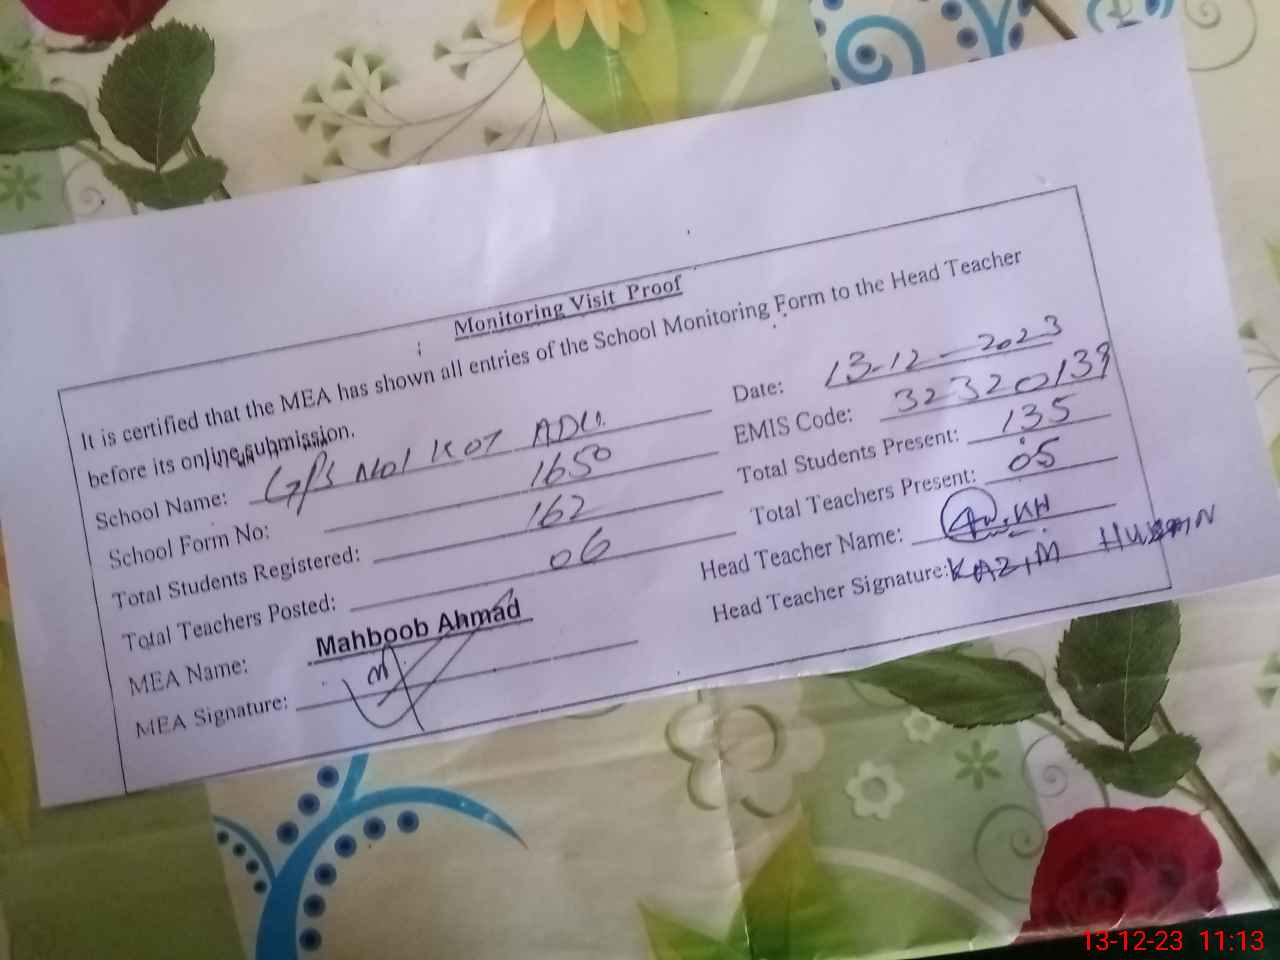 Monitoring Visit Proof
It is certified that the MEA has shown all entries of the School Monitoring Form to the Head Teacher
before its online submission.
Date: 13-12-2023
School Name: GPS No1 KOT ADU.
EMIS Code: 32320139
School Form No: 1650
Total Students Present: 135
Total Students Registered: 162
Total Teachers Present: 05
Total Teachers Posted: 06
Head Teacher Name:
MEA Name: Mahboob Ahmad
Head Teacher Signature: KAZIM HUSSAIN
MEA Signature:
13-12-23 11:13